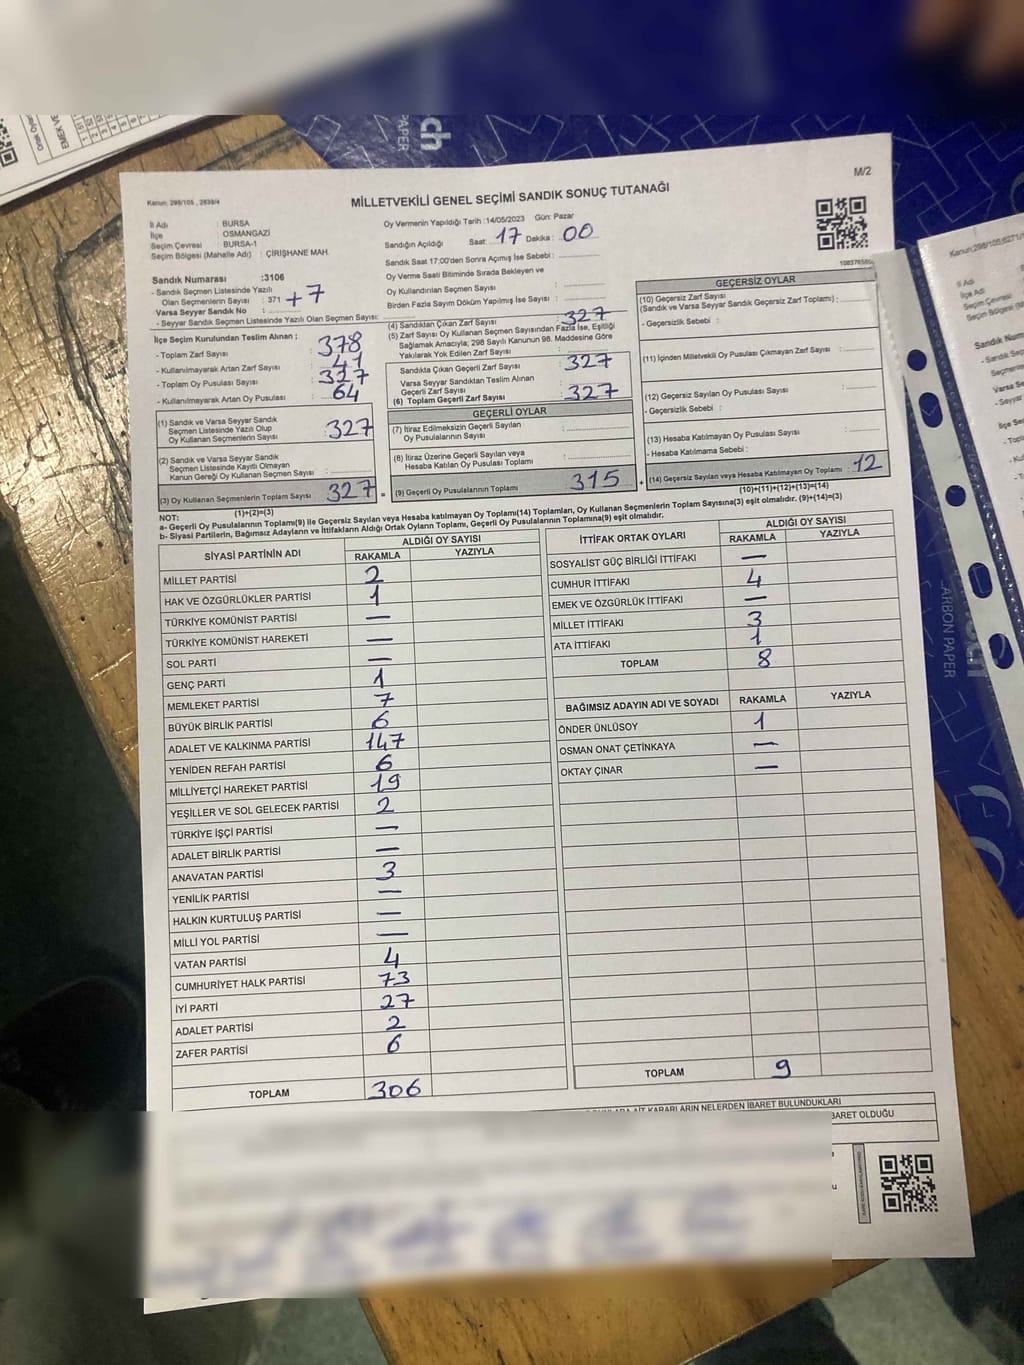 M/2
Kanun: 298/105 , 2839/4
MİLLETVEKİLİ GENEL SEÇİMİ SANDIK SONUÇ TUTANAĞI
İl Adı : BURSA
İlçe : OSMANGAZİ
Seçim Çevresi : BURSA-1
Seçim Bölgesi (Mahalle Adı) : ÇİRİŞHANE MAH.
Sandık Numarası :3106
- Sandık Seçmen Listesinde Yazılı
Olan Seçmenlerin Sayısı : 371 +7
Varsa Seyyar Sandık No :
- Seyyar Sandık Seçmen Listesinde Yazılı Olan Seçmen Sayısı:
Oy Vermenin Yapıldığı Tarih :14/05/2023 Gün: Pazar
Sandığın Açıldığı Saat: 17 Dakika: 00
Sandık Saat 17:00'den Sonra Açılmış İse Sebebi :
Oy Verme Saati Bitiminde Sırada Bekleyen ve
Oy Kullandırılan Seçmen Sayısı :
Birden Fazla Sayım Döküm Yapılmış İse Sayısı :
İlçe Seçim Kurulundan Teslim Alınan ;
- Toplam Zarf Sayısı : 378
- Kullanılmayarak Artan Zarf Sayısı : 41
- Toplam Oy Pusulası Sayısı : 327
- Kullanılmayarak Artan Oy Pusulası : 64
(1) Sandık ve Varsa Seyyar Sandık
Seçmen Listesinde Yazılı Olup
Oy Kullanan Seçmenlerin Sayısı : 327
(2) Sandık ve Varsa Seyyar Sandık
Seçmen Listesinde Kayıtlı Olmayan
Kanun Gereği Oy Kullanan Seçmen Sayısı :
(3) Oy Kullanan Seçmenlerin Toplam Sayısı : 327 =
(1)+(2)=(3)
(4) Sandıktan Çıkan Zarf Sayısı : 327
(5) Zarf Sayısı Oy Kullanan Seçmen Sayısından Fazla İse, Eşitliği
Sağlamak Amacıyla; 298 Sayılı Kanunun 98. Maddesine Göre
Yakılarak Yok Edilen Zarf Sayısı :
Sandıkta Çıkan Geçerli Zarf Sayısı : 327
Varsa Seyyar Sandıktan Teslim Alınan
Geçerli Zarf Sayısı :
(6) Toplam Geçerli Zarf Sayısı : 327
GEÇERLİ OYLAR
(7) İtiraz Edilmeksizin Geçerli Sayılan
Oy Pusulalarının Sayısı :
(8) İtiraz Üzerine Geçerli Sayılan veya
Hesaba Katılan Oy Pusulası Toplamı :
(9) Geçerli Oy Pusulalarının Toplamı : 315 +
GEÇERSİZ OYLAR
(10) Geçersiz Zarf Sayısı
(Sandık ve Varsa Seyyar Sandık Geçersiz Zarf Toplamı) :
- Geçersizlik Sebebi :
(11) İçinden Milletvekili Oy Pusulası Çıkmayan Zarf Sayısı :
(12) Geçersiz Sayılan Oy Pusulası Sayısı :
- Geçersizlik Sebebi :
(13) Hesaba Katılmayan Oy Pusulası Sayısı :
- Hesaba Katılmama Sebebi :
(14) Geçersiz Sayılan veya Hesaba Katılmayan Oy Toplamı : 12
(10)+(11)+(12)+(13)=(14)
NOT:
a- Geçerli Oy Pusulalarının Toplamı(9) ile Geçersiz Sayılan veya Hesaba katılmayan Oy Toplamı(14) Toplamları, Oy Kullanan Seçmenlerin Toplam Sayısına(3) eşit olmalıdır. (9)+(14)=(3)
b- Siyasi Partilerin, Bağımsız Adayların ve İttifakların Aldığı Ortak Oyların Toplamı, Geçerli Oy Pusulalarının Toplamına(9) eşit olmalıdır.
SİYASİ PARTİNİN ADI ALDIĞI OY SAYISI
RAKAMLA YAZIYLA
MİLLET PARTİSİ 2
HAK VE ÖZGÜRLÜKLER PARTİSİ 1
TÜRKİYE KOMÜNİST PARTİSİ —
TÜRKİYE KOMÜNİST HAREKETİ —
SOL PARTİ —
GENÇ PARTİ 1
MEMLEKET PARTİSİ 7
BÜYÜK BİRLİK PARTİSİ 6
ADALET VE KALKINMA PARTİSİ 147
YENİDEN REFAH PARTİSİ 6
MİLLİYETÇİ HAREKET PARTİSİ 19
YEŞİLLER VE SOL GELECEK PARTİSİ 2
TÜRKİYE İŞÇİ PARTİSİ —
ADALET BİRLİK PARTİSİ —
ANAVATAN PARTİSİ 3
YENİLİK PARTİSİ —
HALKIN KURTULUŞ PARTİSİ —
MİLLİ YOL PARTİSİ —
VATAN PARTİSİ 4
CUMHURİYET HALK PARTİSİ 73
İYİ PARTİ 27
ADALET PARTİSİ 2
ZAFER PARTİSİ 6
TOPLAM 306
İTTİFAK ORTAK OYLARI ALDIĞI OY SAYISI
RAKAMLA YAZIYLA
SOSYALİST GÜÇ BİRLİĞİ İTTİFAKI —
CUMHUR İTTİFAKI 4
EMEK VE ÖZGÜRLÜK İTTİFAKI —
MİLLET İTTİFAKI 3
ATA İTTİFAKI 1
TOPLAM 8
BAĞIMSIZ ADAYIN ADI VE SOYADI RAKAMLA YAZIYLA
ÖNDER ÜNLÜSOY 1
OSMAN ONAT ÇETİNKAYA —
OKTAY ÇINAR —
TOPLAM 9
KARARLARIN NELERDEN İBARET BULUNDUKLARI
BARET OLDUĞU
CARBON PAPER